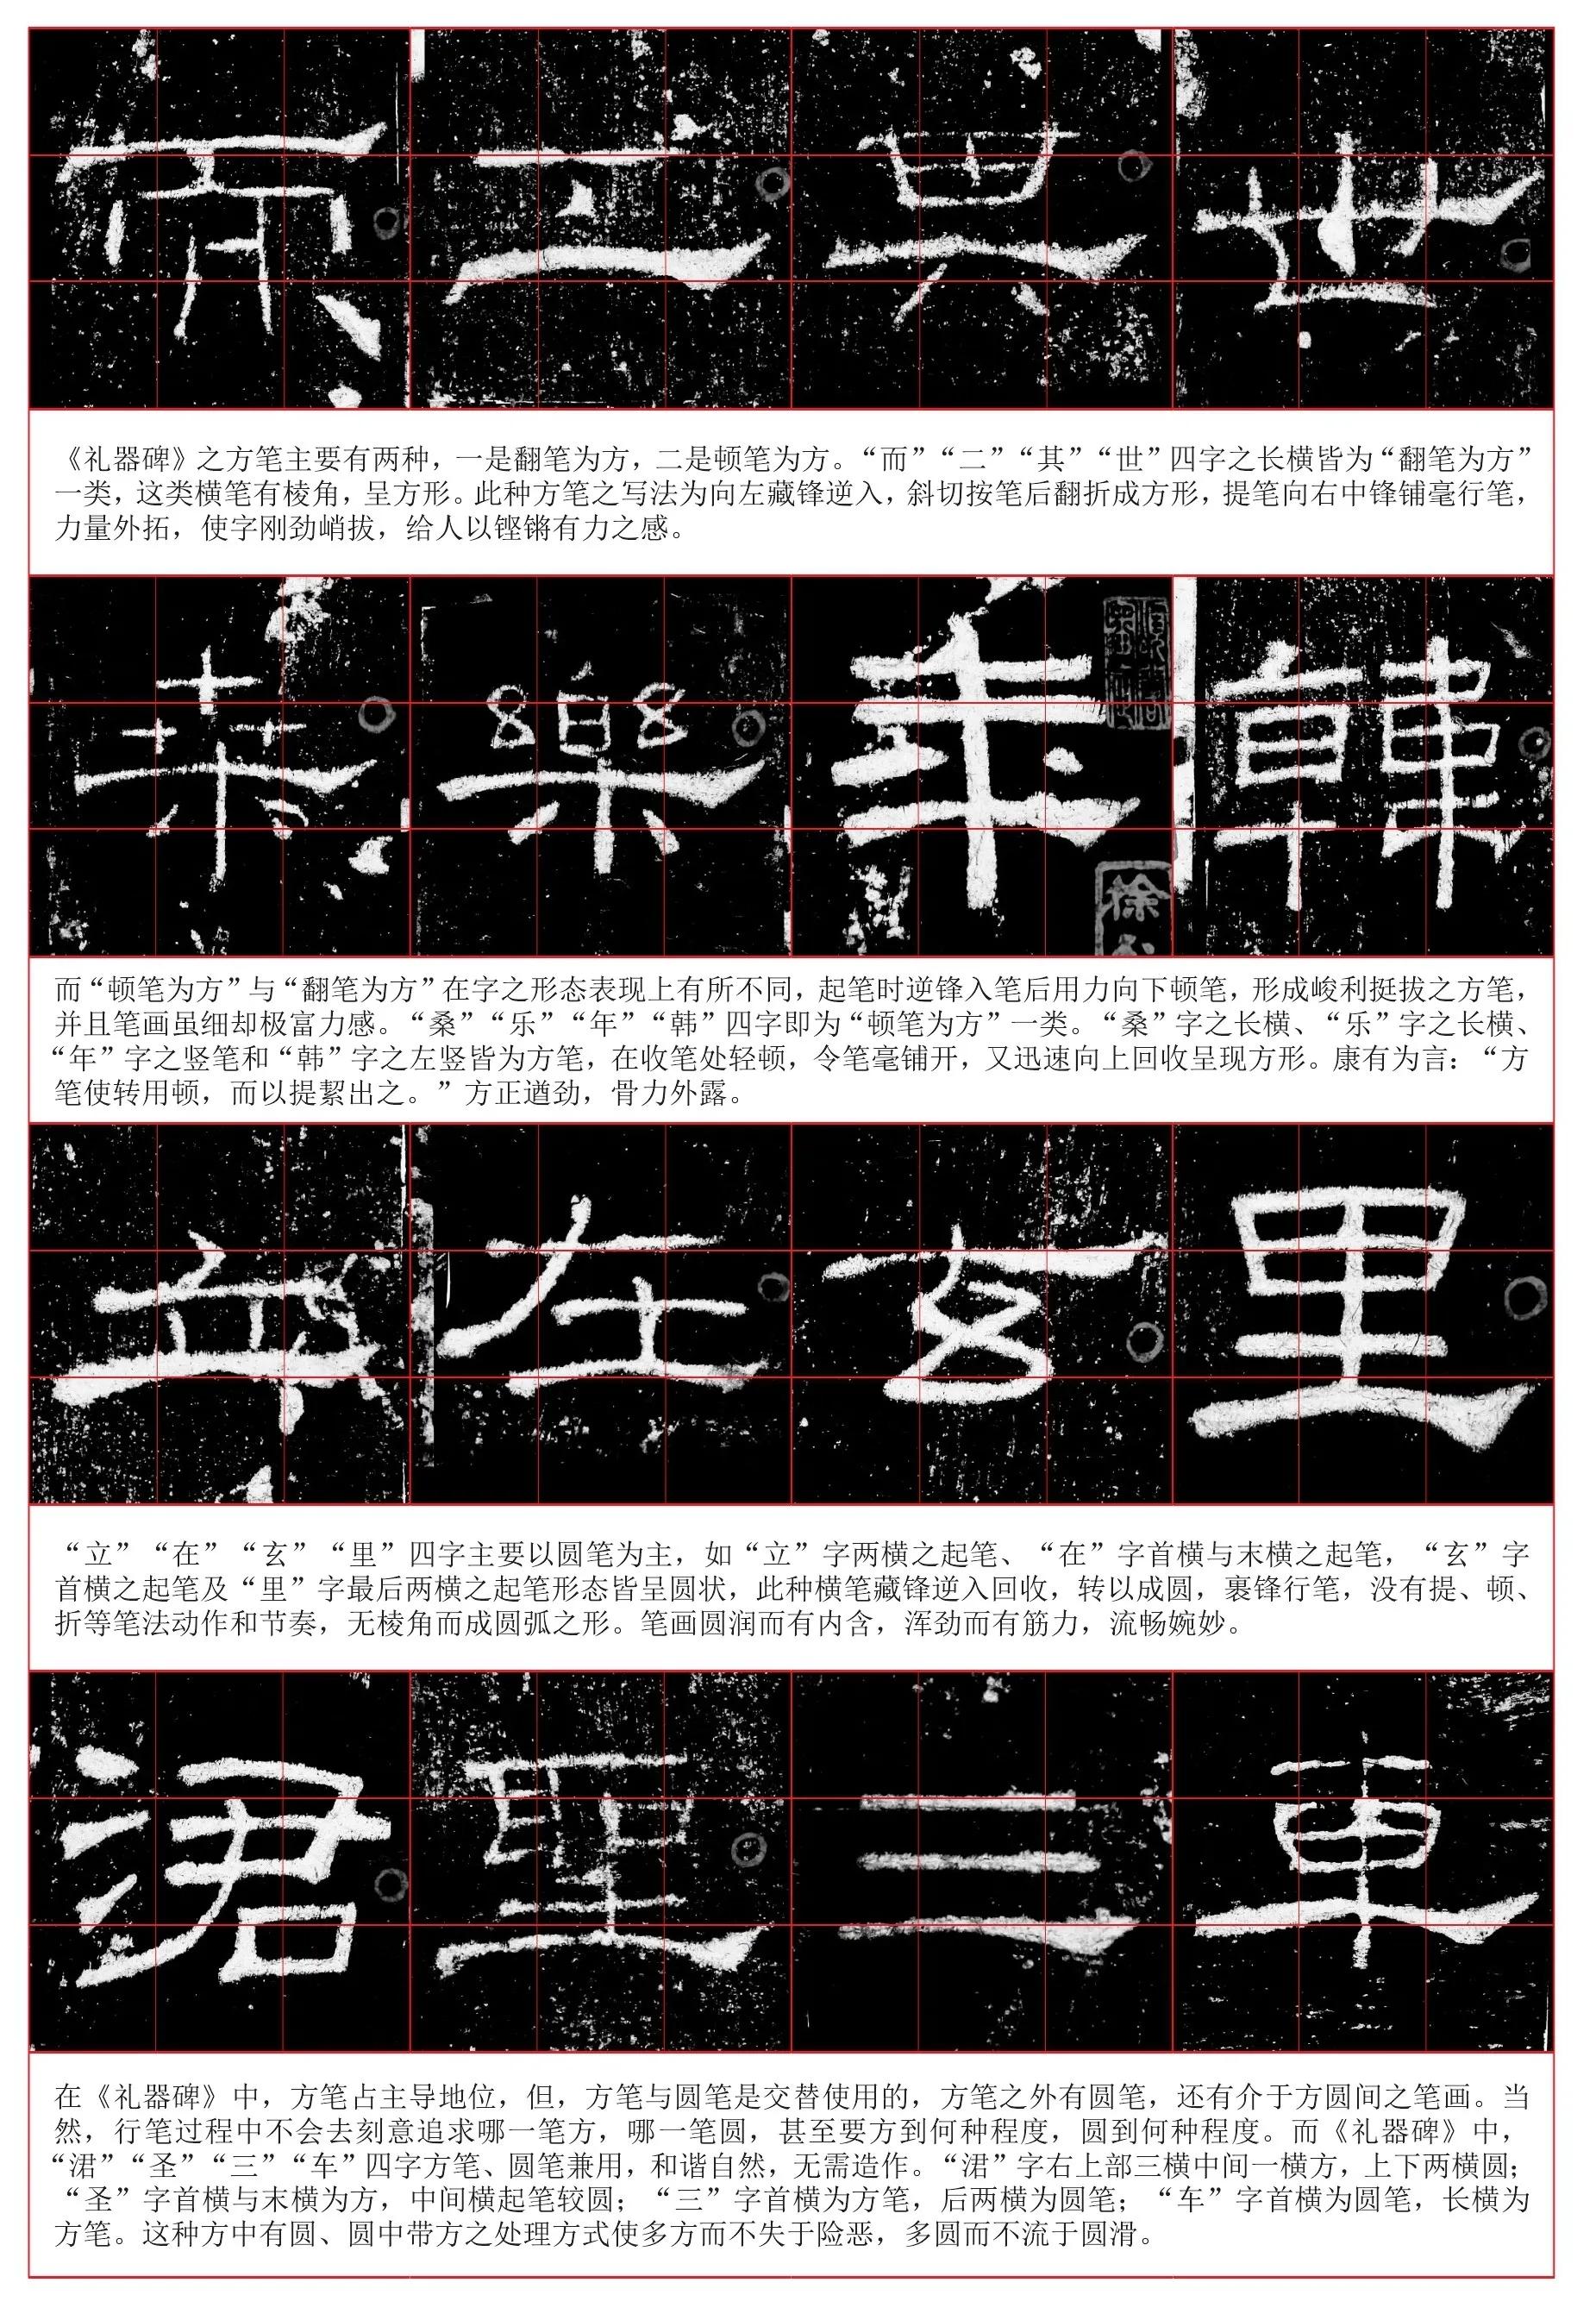 而二其世
《礼器碑》之方笔主要有两种，一是翻笔为方，二是顿笔为方。“而”“二”“其”“世”四字之长横皆为“翻笔为方”
一类，这类横笔有棱角，呈方形。此种方笔之写法为向左藏锋逆入，斜切按笔后翻折成方形，提笔向右中锋铺毫行笔，
力量外拓，使字刚劲峭拔，给人以铿锵有力之感。
桑樂年韓
而“顿笔为方”与“翻笔为方”在字之形态表现上有所不同，起笔时逆锋入笔后用力向下顿笔，形成峻利挺拔之方笔，
并且笔画虽细却极富力感。“桑”“乐”“年”“韩”四字即为“顿笔为方”一类。“桑”字之长横、“乐”字之长横、
“年”字之竖笔和“韩”字之左竖皆为方笔，在收笔处轻顿，令笔毫铺开，又迅速向上回收呈现方形。康有为言：“方
笔使转用顿，而以提絜出之。”方正遒劲，骨力外露。
立在玄里
“立”“在”“玄”“里”四字主要以圆笔为主，如“立”字两横之起笔、“在”字首横与末横之起笔，“玄”字
首横之起笔及“里”字最后两横之起笔形态皆呈圆状，此种横笔藏锋逆入回收，转以成圆，裹锋行笔，没有提、顿、
折等笔法动作和节奏，无棱角而成圆弧之形。笔画圆润而有内含，浑劲而有筋力，流畅婉妙。
涒聖三車
在《礼器碑》中，方笔占主导地位，但，方笔与圆笔是交替使用的，方笔之外有圆笔，还有介于方圆间之笔画。当
然，行笔过程中不会去刻意追求哪一笔方，哪一笔圆，甚至要方到何种程度，圆到何种程度。而《礼器碑》中，
“涒”“圣”“三”“车”四字方笔、圆笔兼用，和谐自然，无需造作。“涒”字右上部三横中间一横方，上下两横圆；
“圣”字首横与末横为方，中间横起笔较圆；“三”字首横为方笔，后两横为圆笔；“车”字首横为圆笔，长横为
方笔。这种方中有圆、圆中带方之处理方式使多方而不失于险恶，多圆而不流于圆滑。